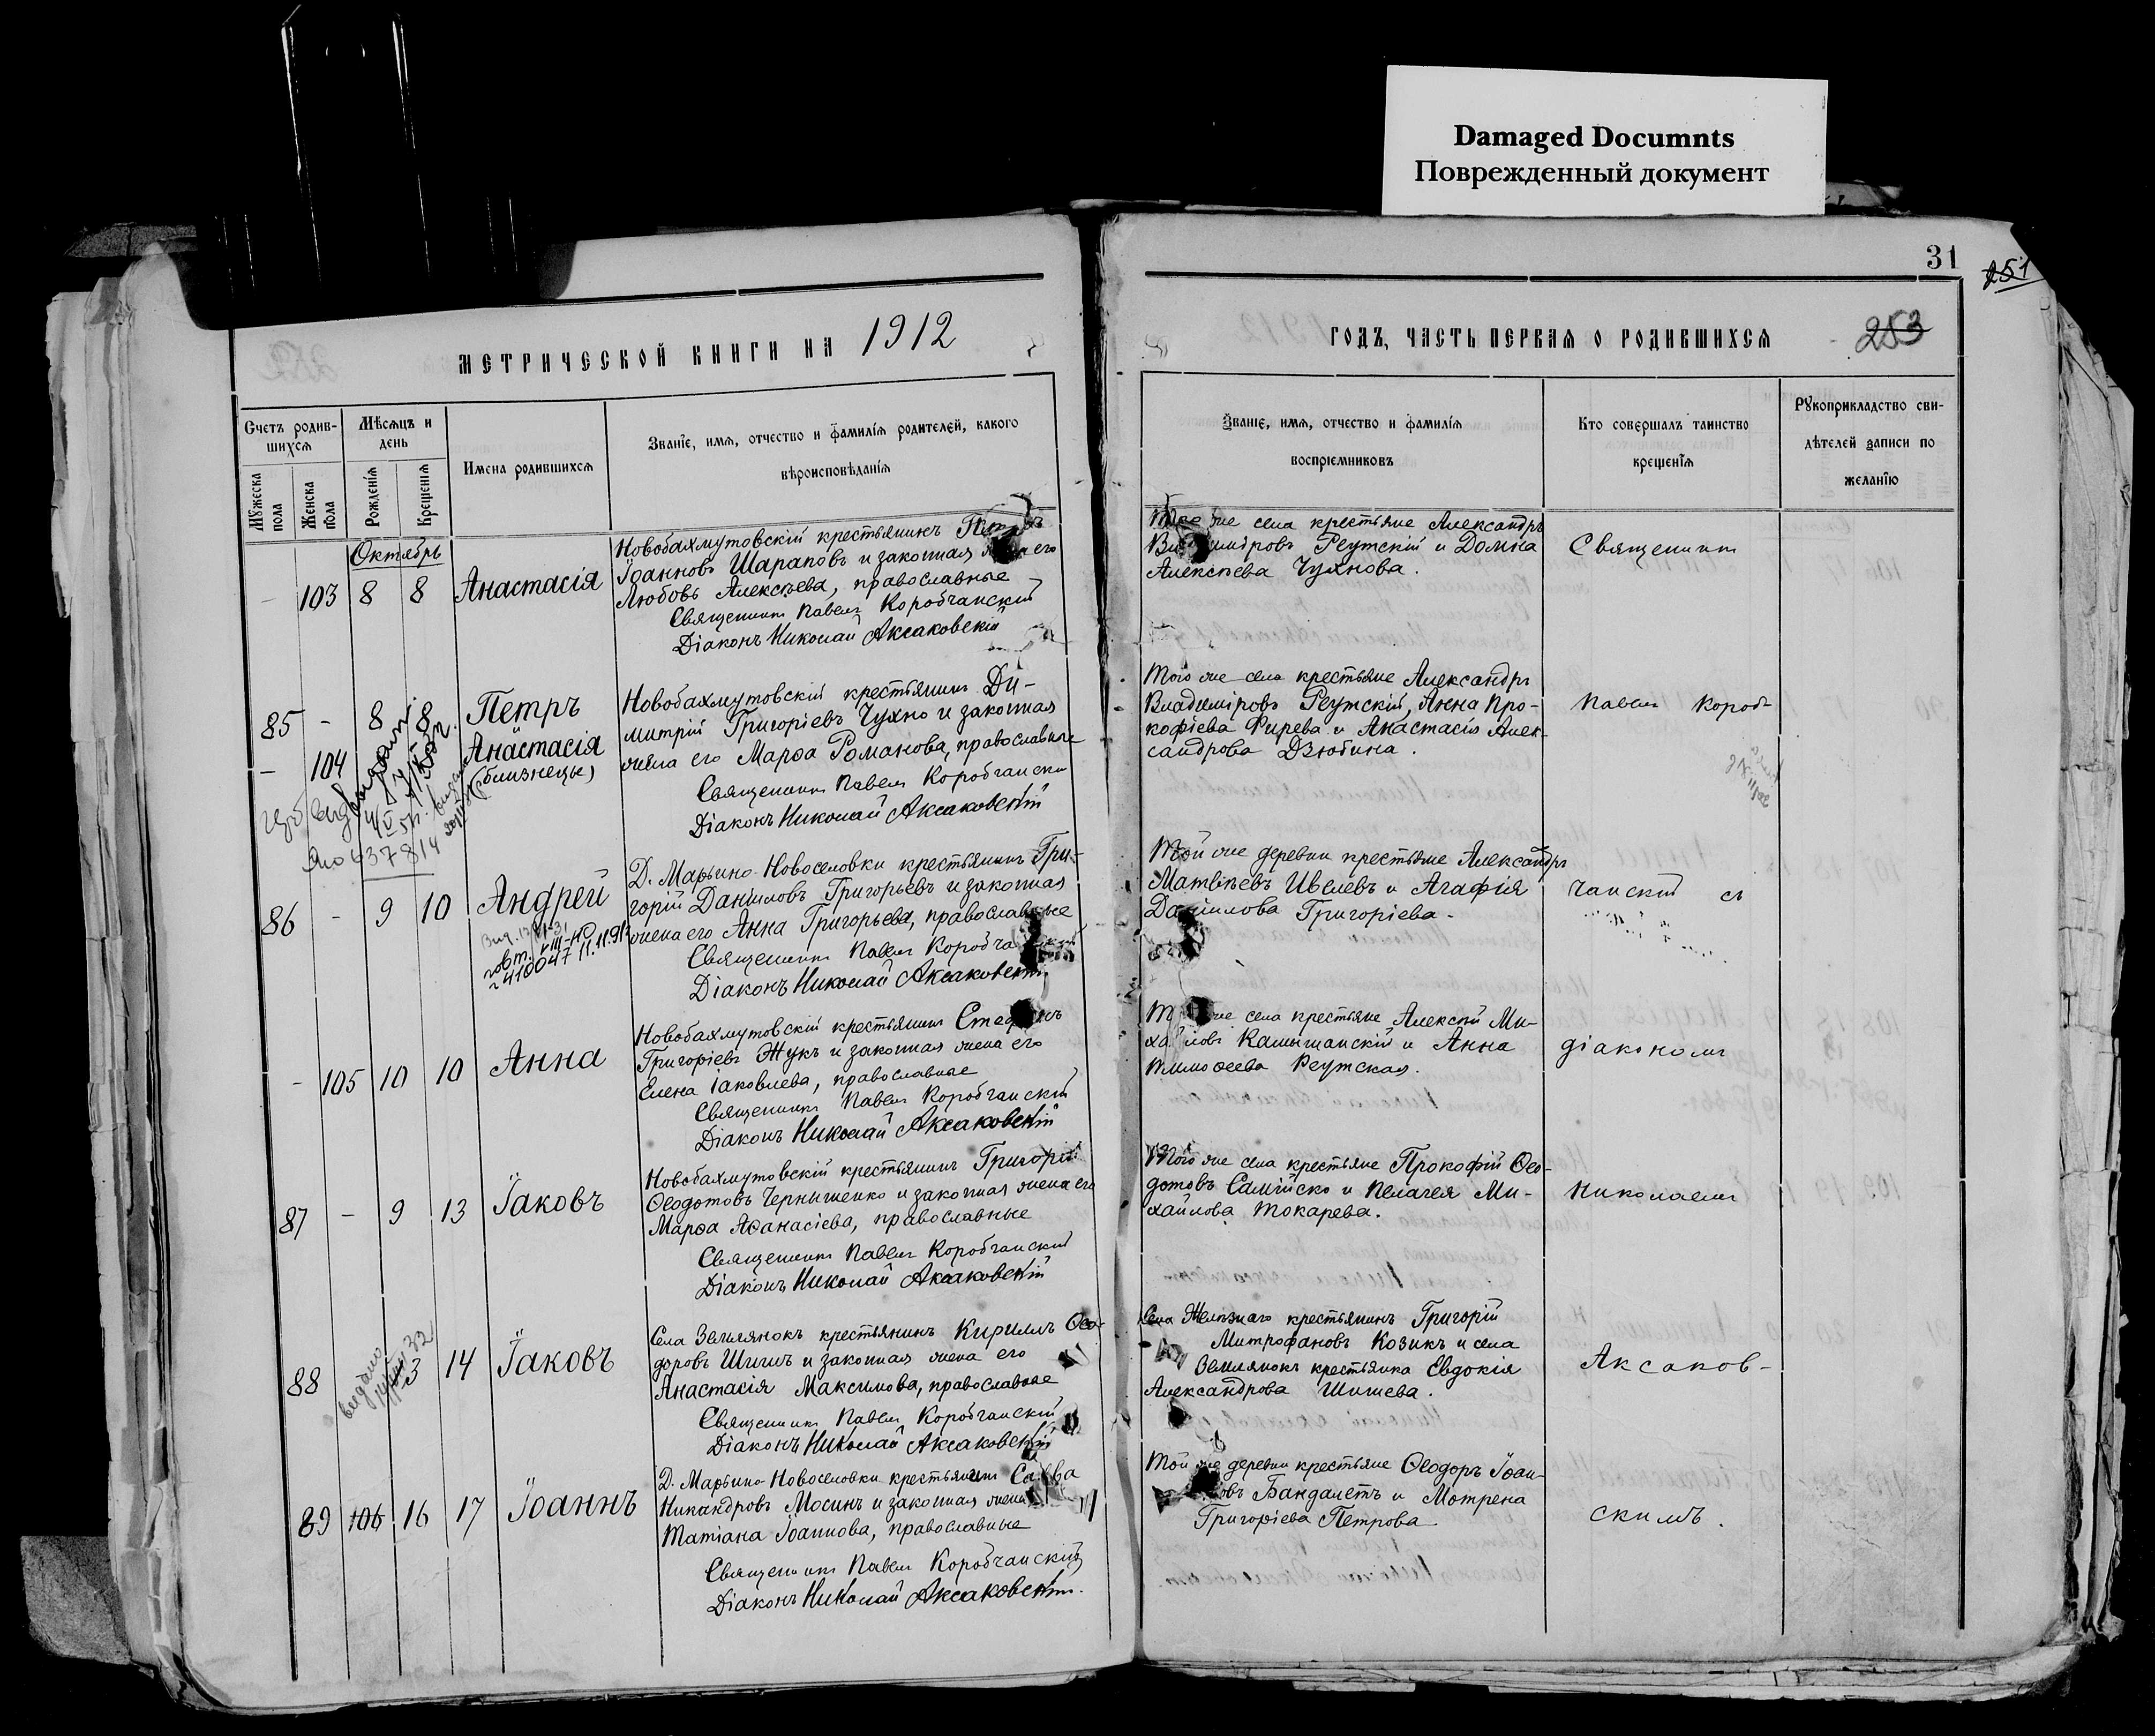 Damaged Documnts
Поврежденный документ
МЕТРИЧЕСКОЙ КНИГИ НА 1912
Счетъ родив-
шихся
Мужеска пола
Женска пола
Мѣсяцъ и
день
Рожденія
Крещенія
Имена родившихся
Званіе, имя, отчество и фамилія родителей, какого
вѣроисповѣданія
Октябрь
- 103 8 8 Анастасія
Новобахмутовскій крестьянинъ Петръ
Іоанновъ Шараповъ и законная жена его
Любовь Алексѣева, православные
Священникъ Павелъ Коробчанскій
Діаконъ Николай Аксаковскій
85 - 8 8 Петръ
- 104 Анастасія
(близнецы)
Новобахмутовскій крестьянинъ Ди-
митрій Григоріевъ Чухно и законная
жена его Марѳа Романова, православные
Священникъ Павелъ Коробчански
Діаконъ Николай Аксаковскій
637814
86 - 9 10 Андрей
410047 11.11.91
Д. Марьино-Новоселовки крестьянинъ Гри-
горій Даніиловъ Григорьевъ и законная
жена его Анна Григорьева, православные
Священникъ Павелъ Коробчанскій
Діаконъ Николай Аксаковскій
- 105 10 10 Анна
Новобахмутовскій крестьянинъ Стефанъ
Григоріевъ Жукъ и законная жена его
Елена Іаковлева, православные
Священникъ Павелъ Коробчанскій
Діаконъ Николай Аксаковскій
87 - 9 13 Іаковъ
Новобахмутовскій крестьянинъ Григорій
Ѳеодотовъ Чернышенко и законная жена его
Марѳа Аѳанасіева, православные
Священникъ Павелъ Коробчанскій
Діаконъ Николай Аксаковскій
88 13 14 Іаковъ
выдано
32
Села Землянокъ крестьянинъ Кириллъ Ѳео-
доровъ Шишъ и законная жена его
Анастасія Максимова, православные
Священникъ Павелъ Коробчанскій
Діаконъ Николай Аксаковскій
89 106 16 17 Іоаннъ
Д. Марьино-Новоселовки крестьянинъ Савва
Никандровъ Мосинъ и законная жена
Татіана Іоаннова, православные
Священникъ Павелъ Коробчанскій
Діаконъ Николай Аксаковскій.
31
251
ГОДЪ, ЧАСТЬ ПЕРВАЯ О РОДИВШИХСЯ
253
Званіе, имя, отчество и фамилія
воспріемниковъ
Кто совершалъ таинство
крещенія
Рукоприкладство сви-
дѣтелей записи по
желанію
Того же села крестьяне Александръ
Владиміровъ Реутскій и Домна
Алексѣева Чухнова.
Священникъ
Того же села крестьяне Александръ
Владиміровъ Реутскій, Анна Про-
кофіева Фирева и Анастасія Алек-
сандрова Дзюбина.
Павелъ Короб-
Той же деревни крестьяне Александръ
Матвѣевъ Ивлевъ и Агафія
Даніилова Григоріева.
чанскій съ
Того же села крестьяне Алексѣй Ми-
хайловъ Камышанскій и Анна
Тимоѳеева Реутская.
діакономъ
Того же села крестьяне Прокофій Ѳео-
дотовъ Самійско и Пелагея Ми-
хайлова Токарева.
Николаемъ
Села Желѣзнаго крестьянинъ Григорій
Митрофановъ Козикъ и села
Землянокъ крестьянка Евдокія
Александрова Шишева.
Аксаков-
Той же деревни крестьяне Ѳеодоръ Іоан-
новъ Бандалетъ и Мотрена
Григоріева Петрова
скимъ.